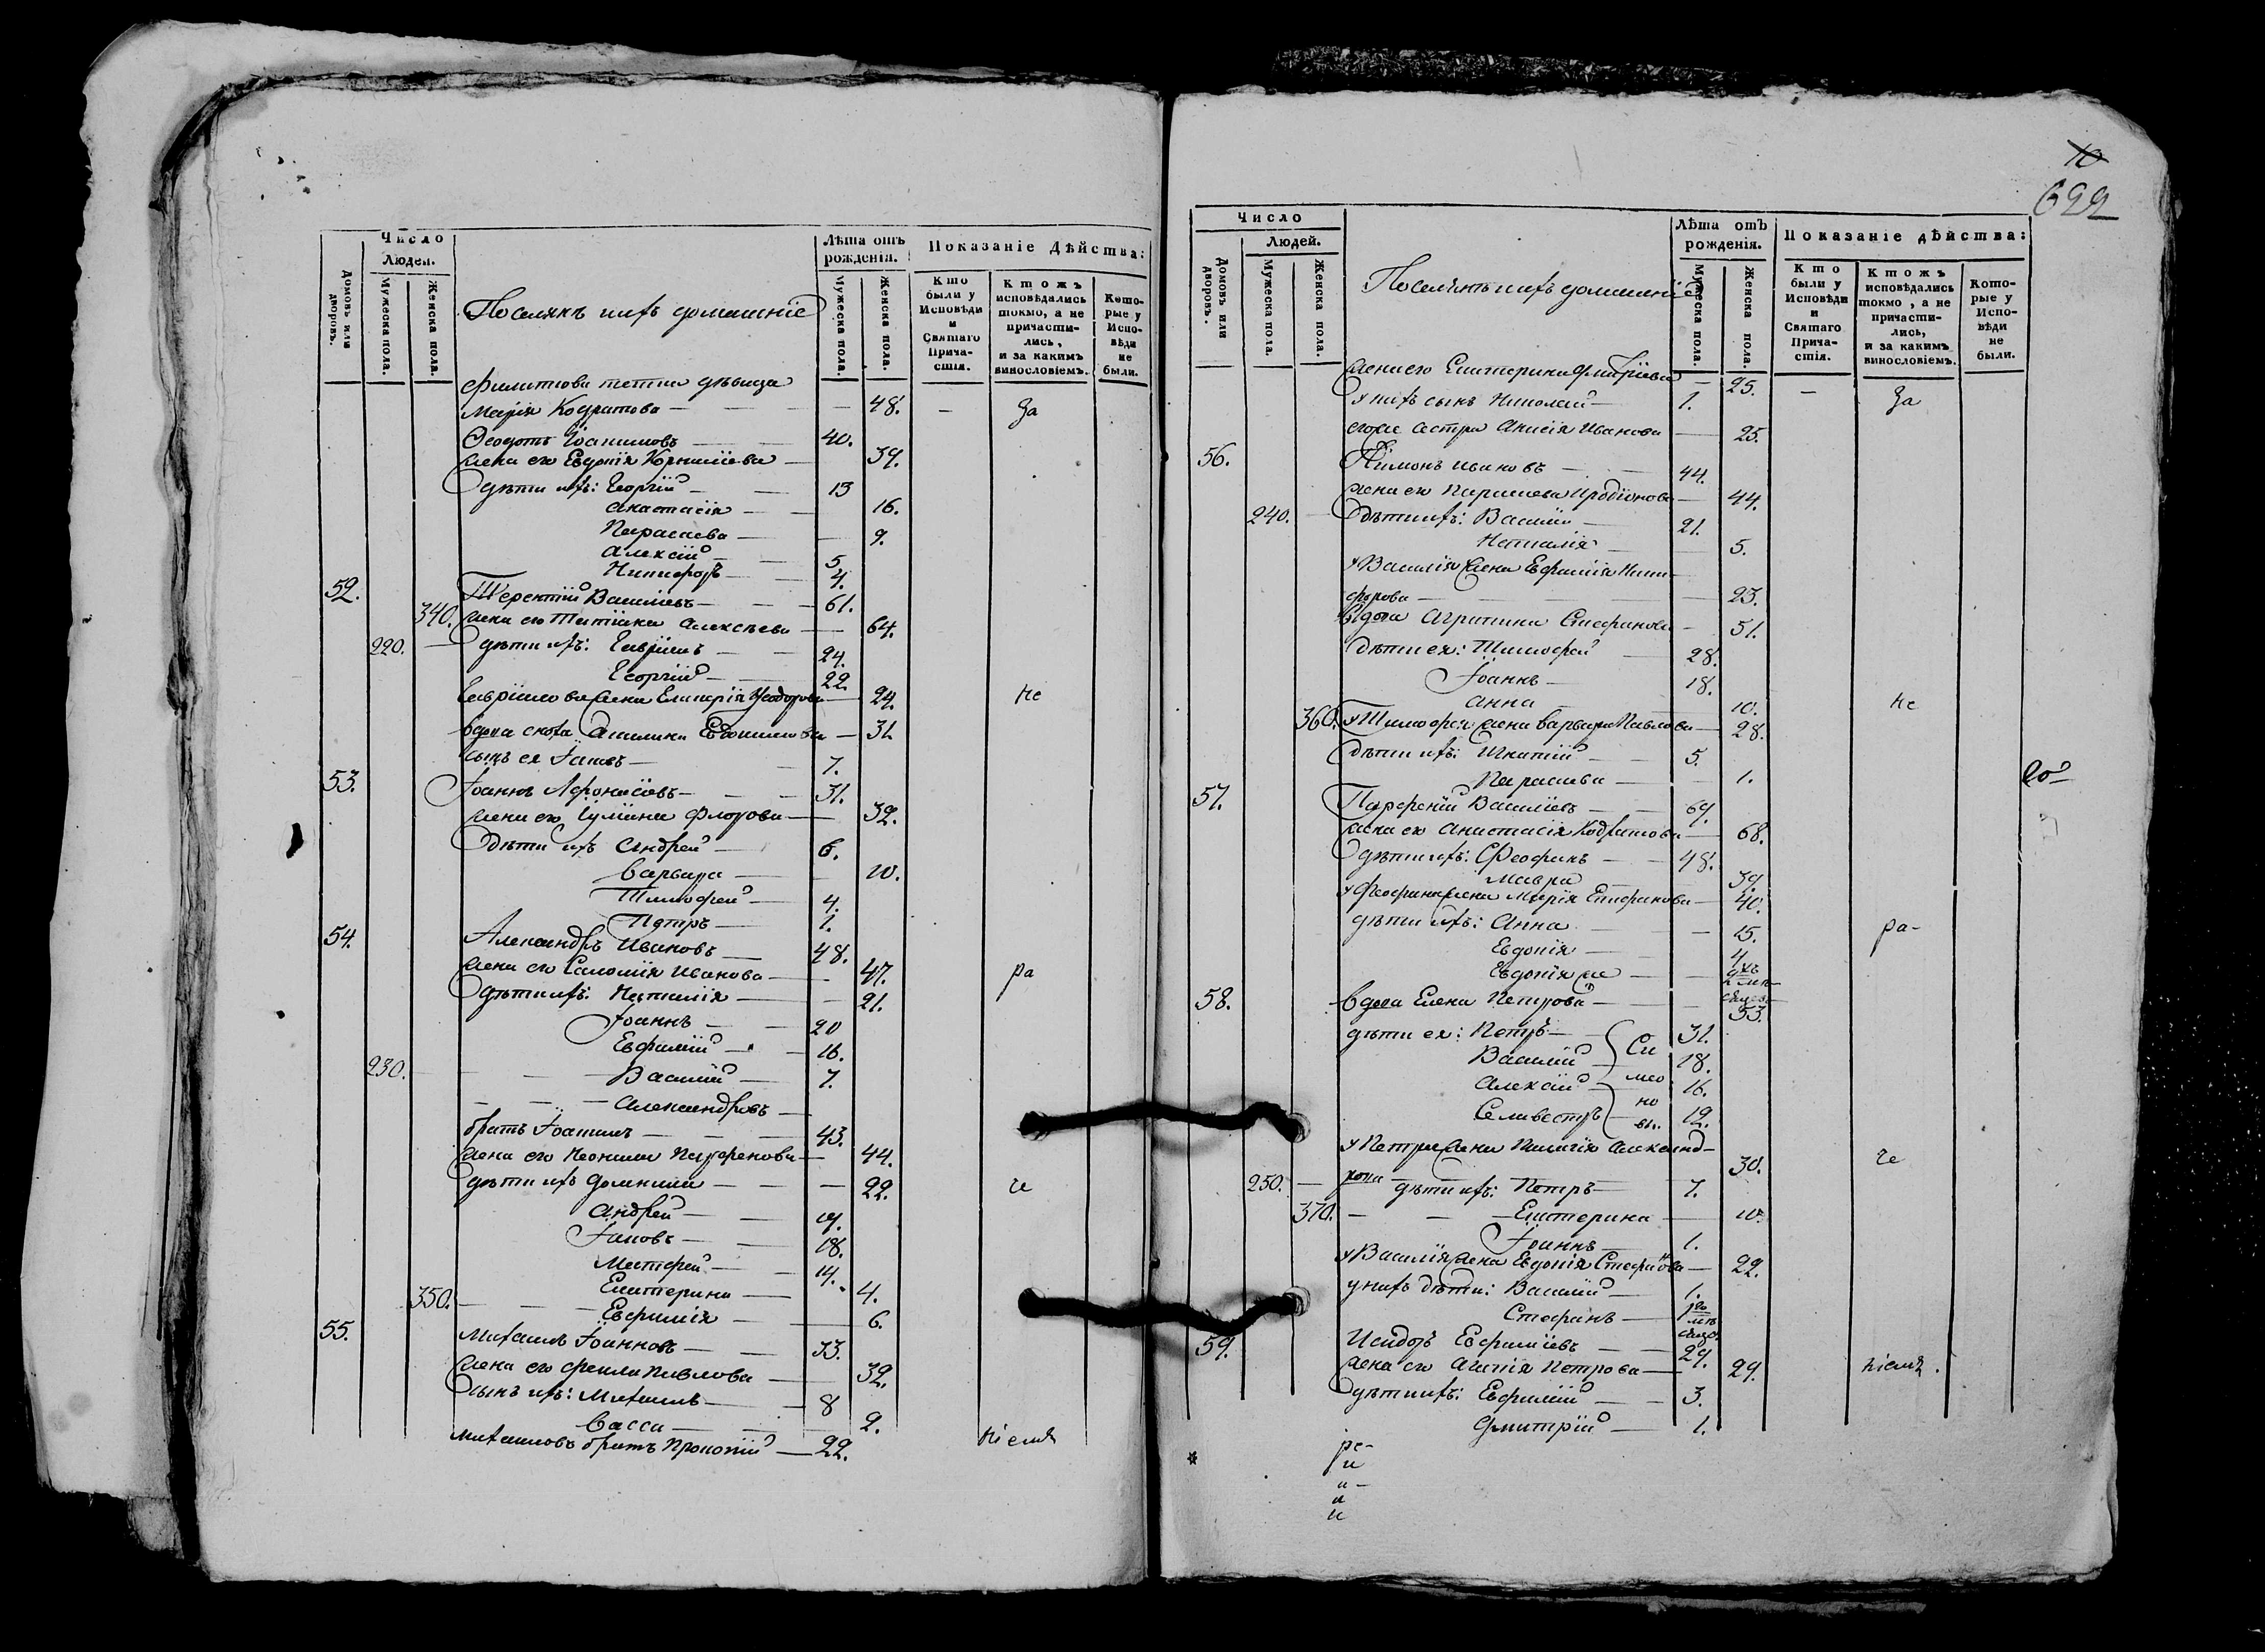 Число
Людей.
Домовъ или дворовъ.
Мужеска пола.
Женска пола.
Поселянъ ихъ домашніе
Лѣта отъ рожденія.
Мужеска пола.
Женска пола.
Показаніе дѣйства:
Кто были у Исповѣди и Святаго Причастія.
Ктожъ исповѣдались токмо, а не причастились, и за какимъ винословіемъ.
Которые у Исповѣди не были.
Филипова тетка дѣвица
Марія Кодратова — 48. — За
Ѳеодотъ Іоакимовъ — 40.
жена его Евдокія Корниліева — 39.
дѣти ихъ: Георгій — 13
Анастасія — 16.
Параскева — 9.
Алексій — 5.
Никифоръ — 4.
52. Терентій Василіевъ — 61.
340. жена его Татіана Алексѣева — 64.
220. дѣти ихъ: Гавріилъ — 24.
Георгій — 22.
Гавріилова жена Гликерія Ѳеодорова — 24. не
вдова сноха Акилина Евфимиова — 31.
сынъ ея Іаковъ — 7.
53. Іоаннъ Афонасіовъ — 31.
жена его Іуліана Флорова — 32.
дѣти ихъ Андрей — 6.
Варвара — 10.
Тимофей — 4.
Петръ — 1.
54. Александръ Ивановъ — 48.
жена его Саломія Иванова — 47. ра
дѣти ихъ: Наталія — 21.
Іоаннъ — 20
Евфимій — 16.
230. Василій — 7.
Александровъ
братъ Іоакимъ — 43.
жена его Неонила Парфенова — 44.
дѣти ихъ Домникія — 22. че
Андрей — 19.
Іаковъ — 18.
Матфей — 14.
Екатерина — 4.
350. Евфимія — 6.
55. Михаилъ Іоанновъ — 33.
жена его Фекла Павлова — 32.
сынъ ихъ: Михаилъ — 8
Васса — 2.
Михаиловъ братъ Прокопій — 22. ніемъ
10
699
Число
Людей.
Домовъ или дворовъ.
Мужеска пола.
Женска пола.
Поселянъ ихъ домашніе
Лѣта отъ рожденія.
Мужеска пола.
Женска пола.
Показаніе дѣйства:
Кто были у Исповѣди и Святаго Причастія.
Ктожъ исповѣдались токмо, а не причастились, и за какимъ винословіемъ.
Которые у Исповѣди не были.
жена его Екатерина Дмитріева — 25. — За
у нихъ сынъ Николай — 1.
его же сестра Анисія Иванова — 25.
56. Пимонъ Ивановъ — 44.
жена его Параскева Иродіонова — 44.
240. дѣти ихъ: Василій — 21.
Наталія — 5.
у Василія жена Евфимія Ники-
форова — 23.
вдова Агрипина Стефанова — 51.
дѣти ея: Тимофей — 28.
Іоаннъ — 18.
Анна — 10. не
360. у Тимофея жена Варвара Павлова — 28.
дѣти ихъ: Игнатій — 5.
Параскева — 1.
57. Парфеній Василіевъ — 69.
жена его Анастасія Кодратова — 68.
дѣти ихъ: Феофанъ — 48.
Мавра — 39.
у Феофана жена Марія Епифанова — 40.
дѣти ихъ: Анна — 15. ра-
Евдокія — 4
Евдокія же
58. вдова Елена Петрова — 53.
дѣти ея: Петръ — Си 31.
Василій — 18.
Алексій — мео 16.
Селивестръ — но вы. 12.
у Петра жена Пелагія Александ-
рова — 30. че
250. дѣти ихъ: Петръ — 7.
370. Екатерина — 10.
Іоаннъ — 1.
у Василія жена Евдокія Стефанова — 22.
у нихъ дѣти: Василій — 1.
Стефанъ
59. Исидоръ Евфиміевъ — 29.
жена его Агапія Петрова — 29. ніемъ.
дѣти ихъ: Евфимій — 3.
Дмитрій — 1.